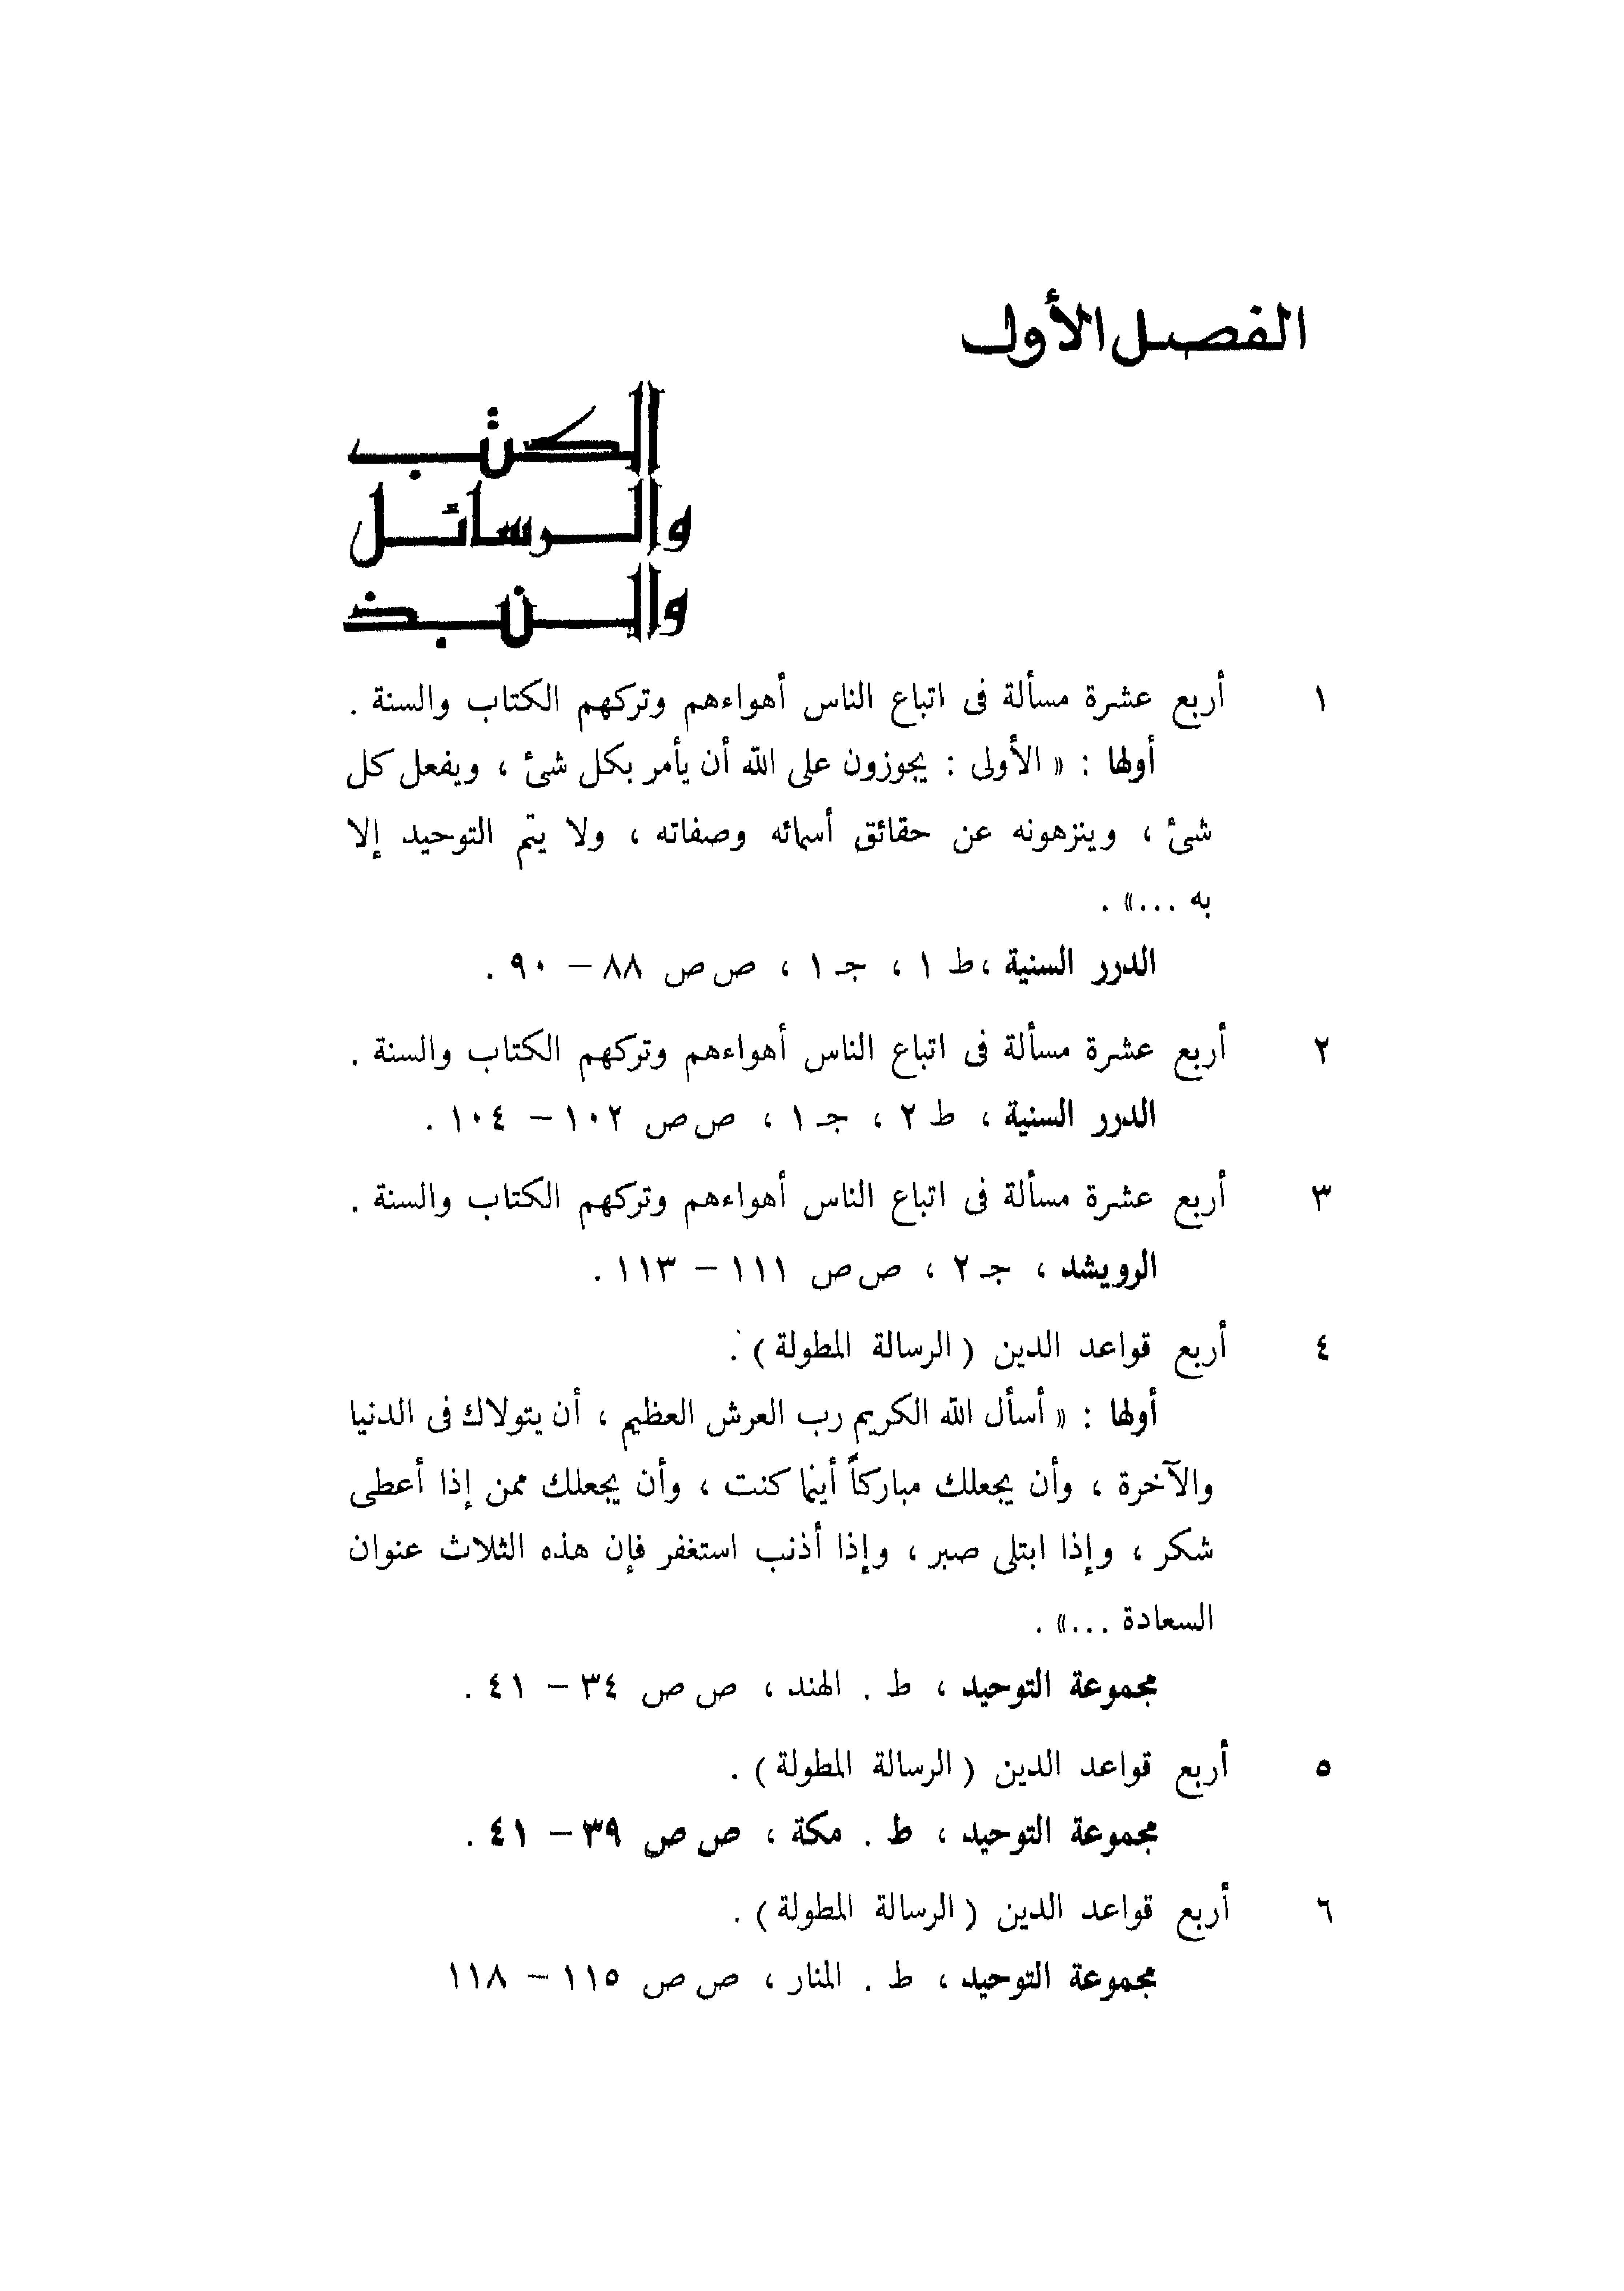 الفصل الأول
الكتب
والرسائل
والنبذ
١ أربع عشرة مسألة فى اتباع الناس أهواءهم وتركهم الكتاب والسنة .
أولها : « الأولى : يجوزون على الله أن يأمر بكل شئ ، ويفعل كل
شئ ، وينزهونه عن حقائق أسمائه وصفاته ، ولا يتم التوحيد إلا
به ...» .
الدرر السنية ، ط ١ ، جـ ١ ، ص ص ٨٨ – ٩٠ .
٢ أربع عشرة مسألة فى اتباع الناس أهواءهم وتركهم الكتاب والسنة .
الدرر السنية ، ط ٢ ، جـ ١ ، ص ص ١٠٢ – ١٠٤ .
٣ أربع عشرة مسألة فى اتباع الناس أهواءهم وتركهم الكتاب والسنة .
الرويشد ، جـ ٢ ، ص ص ١١١ – ١١٣ .
٤ أربع قواعد الدين ( الرسالة المطولة ) .
أولها : « أسأل الله الكريم رب العرش العظيم ، أن يتولاك فى الدنيا
والآخرة ، وأن يجعلك مباركاً أينما كنت ، وأن يجعلك ممن إذا أعطى
شكر ، وإذا ابتلى صبر ، وإذا أذنب استغفر فإن هذه الثلاث عنوان
السعادة ...» .
مجموعة التوحيد ، ط . الهند ، ص ص ٣٤ – ٤١ .
٥ أربع قواعد الدين ( الرسالة المطولة ) .
مجموعة التوحيد ، ط . مكة ، ص ص ٣٩ – ٤١ .
٦ أربع قواعد الدين ( الرسالة المطولة ) .
مجموعة التوحيد ، ط . المنار ، ص ص ١١٥ – ١١٨